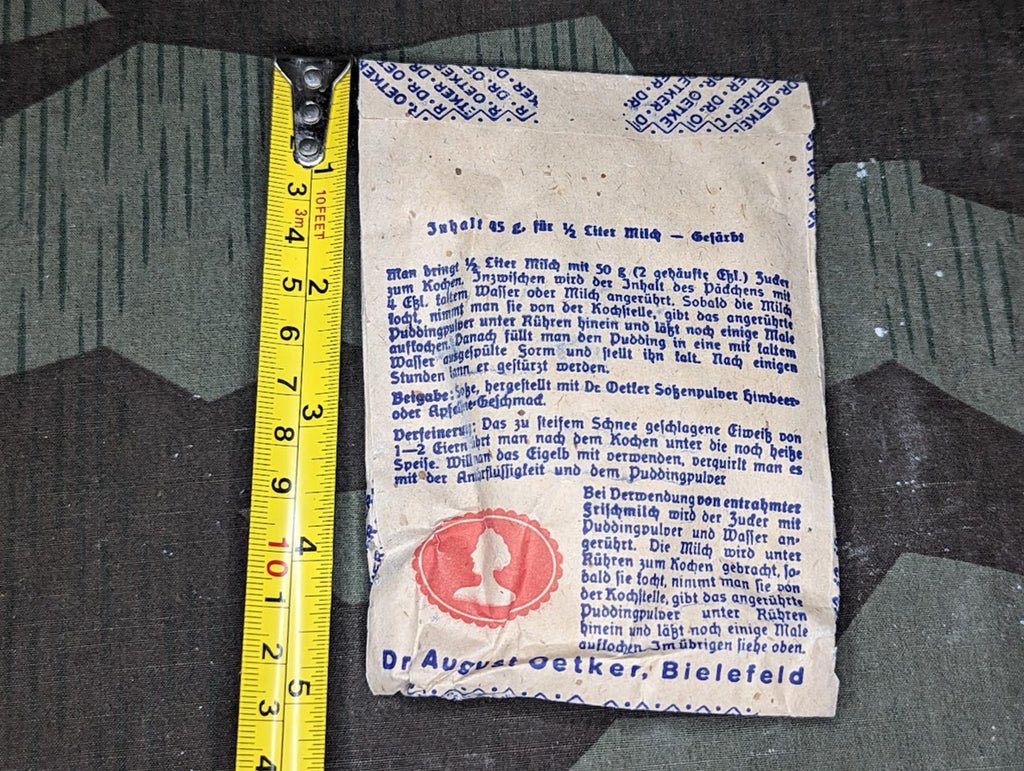 DR. OETKER · DR. OETKER · DR. OETKER
Inhalt 45 g, für ½ Liter Milch — Gefärbt
Man bringt ½ Liter Milch mit 50 g (2 gehäufte Eßl.) Zucker
zum Kochen. Inzwischen wird der Inhalt des Päckchens mit
4 Eßl. kaltem Wasser oder Milch angerührt. Sobald die Milch
kocht, nimmt man sie von der Kochstelle, gibt das angerührte
Puddingpulver unter Rühren hinein und läßt noch einige Male
aufkochen. Danach füllt man den Pudding in eine mit kaltem
Wasser ausgespülte Form und stellt ihn kalt. Nach einigen
Stunden kann er gestürzt werden.
Beigabe: Soße, hergestellt mit Dr. Oetker Soßenpulver Himbeer-
oder Apfelsine-Geschmack.
Verfeinerung: Das zu steifem Schnee geschlagene Eiweiß von
1—2 Eiern rührt man nach dem Kochen unter die noch heiße
Speise. Will man das Eigelb mit verwenden, verquirlt man es
mit der Anrührflüssigkeit und dem Puddingpulver
Bei Verwendung von entrahmter
Frischmilch wird der Zucker mit
Puddingpulver und Wasser an-
gerührt. Die Milch wird unter
Rühren zum Kochen gebracht, so-
bald sie kocht, nimmt man sie von
der Kochstelle, gibt das angerührte
Puddingpulver unter Rühren
hinein und läßt noch einige Male
aufkochen. Im übrigen siehe oben.
Dr. August Oetker, Bielefeld
1
3
3m
10FEET
4
5
2
6
7
3
8
9
4
10
1
2
5
3
4